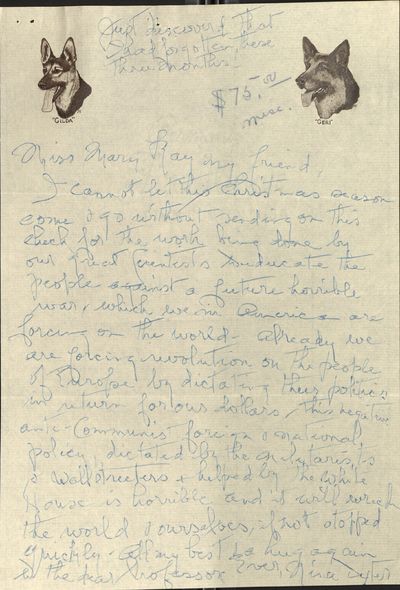 Just discovered that
I had forgotten these
three months
"GILDA"
"GERI"
$75.00
misc.
Miss Mary Kay my friend,
I cannot let this Christmas season
come & go without sending on this
check for the work being done by
our Great Scientists to educate the
people against a future horrible
war, which we in America are
forcing on the world. Already we
are forcing revolution on the people
of Europe by dictating their politics
in return for our dollars, this negative
anti-Communist foreign & national
policy, dictated by the militarists
& Wallstreeters & helped by the White
House is horrible and it will wreck
the world & ourselves, if not stopped
quickly. All my best & a hug again
to the dear Professor Ever, Nina